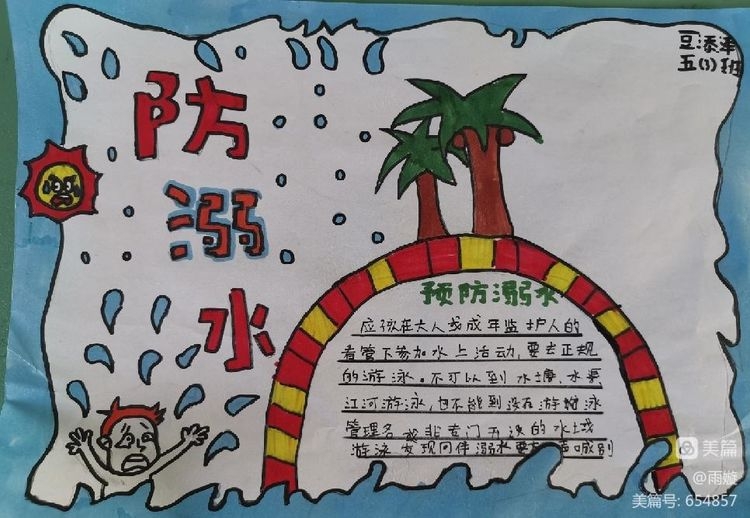 防溺水
豆添泽
五(1)班
预防溺水
应似在大人或成年监护人的
看管下参加水上活动,要去正规
的游泳。不可以到水塘、水渠
江河游泳,也不能到没在游
管理名或非专门开设的水域
游泳 发现同伴溺水要
美篇
@雨璇
美篇号: 654857